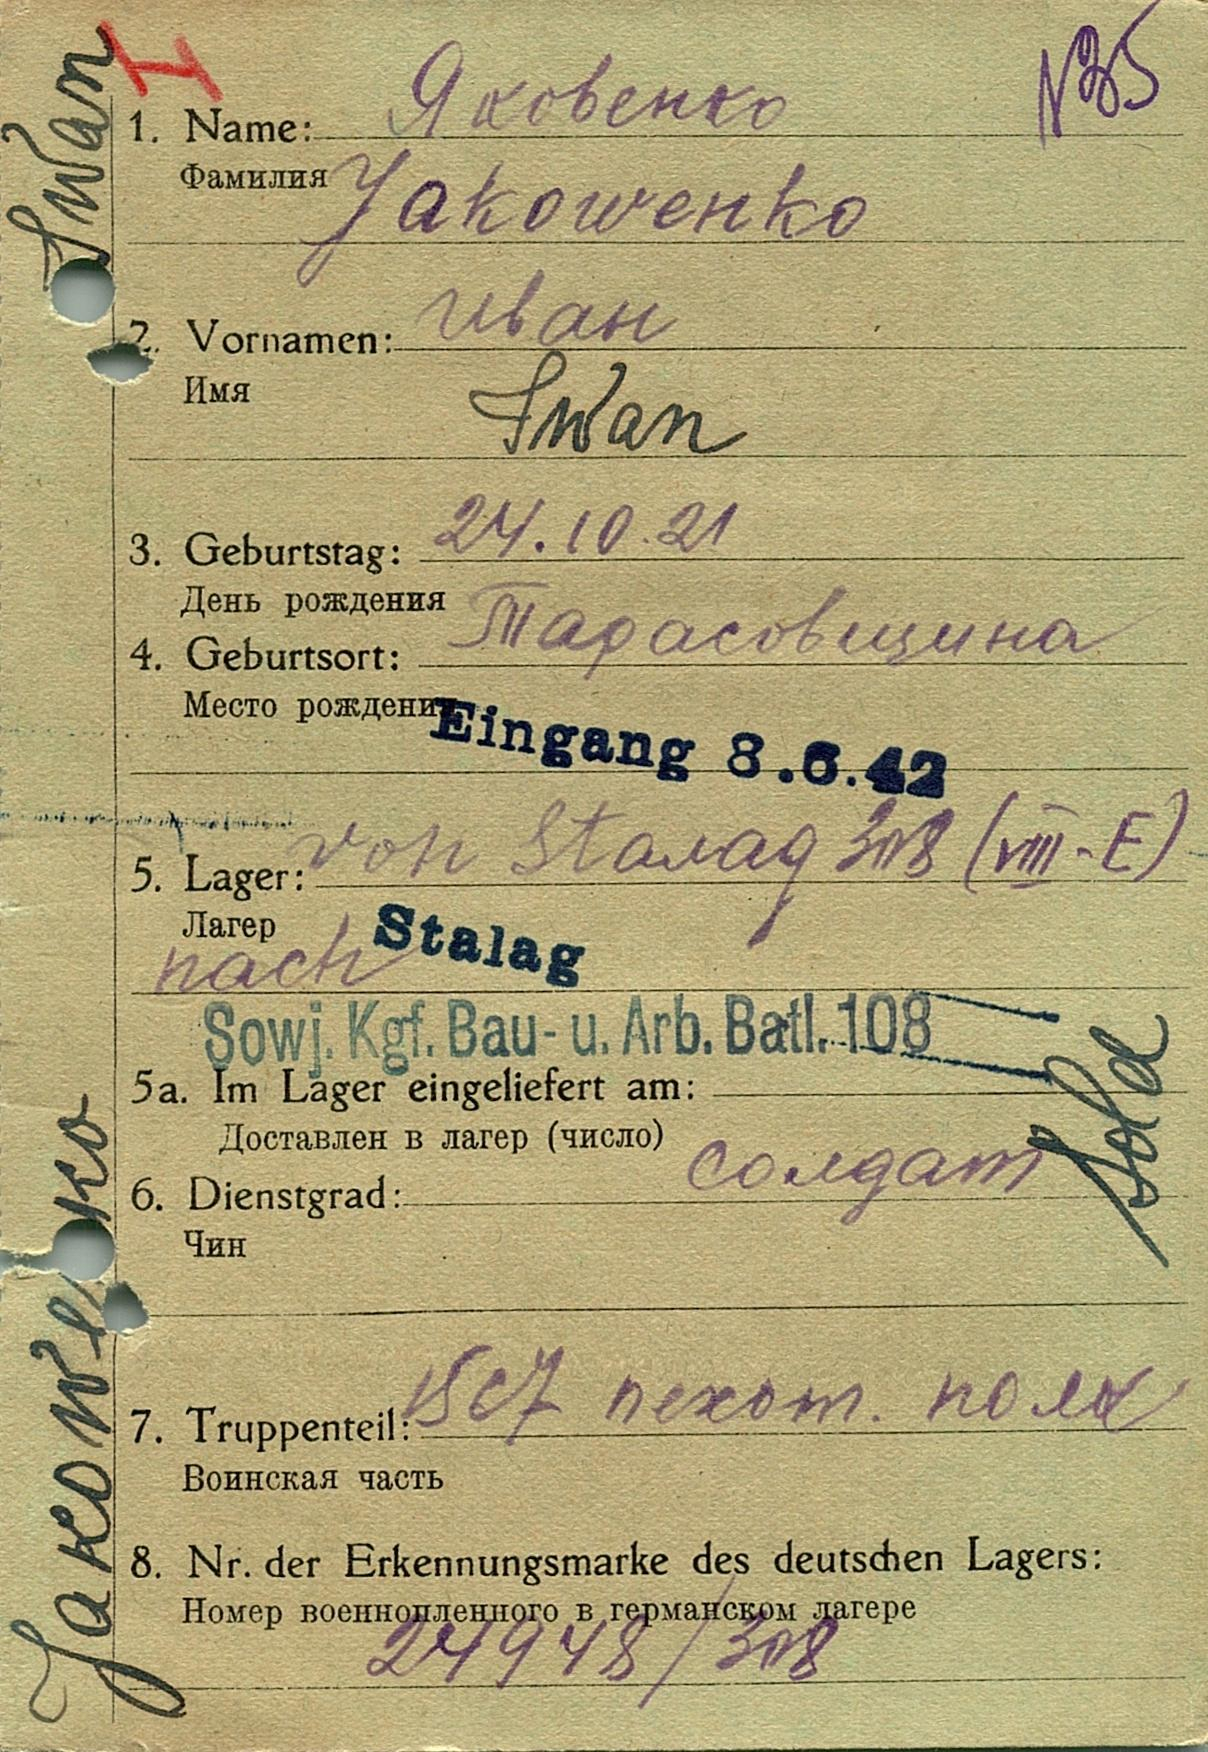 I
N35
Яковенко
1. Name:
Фамилия
Jakowenko
Иван
2. Vornamen:
Имя
Iwan
24.10.21
3. Geburtstag:
День рождения
Тарасовщина
4. Geburtsort:
Место рождения
Eingang 8.6.42
von Stalag 308 (VIII-E)
5. Lager:
Лагер
nach Stalag
Sowj. Kgf. Bau- u. Arb. Batl. 108
5a. Im Lager eingeliefert am:
Доставлен в лагер (число)
солдат
6. Dienstgrad:
Чин
Sold
пехот. полк
7. Truppenteil:
Воинская часть
8. Nr. der Erkennungsmarke des deutschen Lagers:
Номер военнопленного в германском лагере
24948/308
Jakowenko Iwan